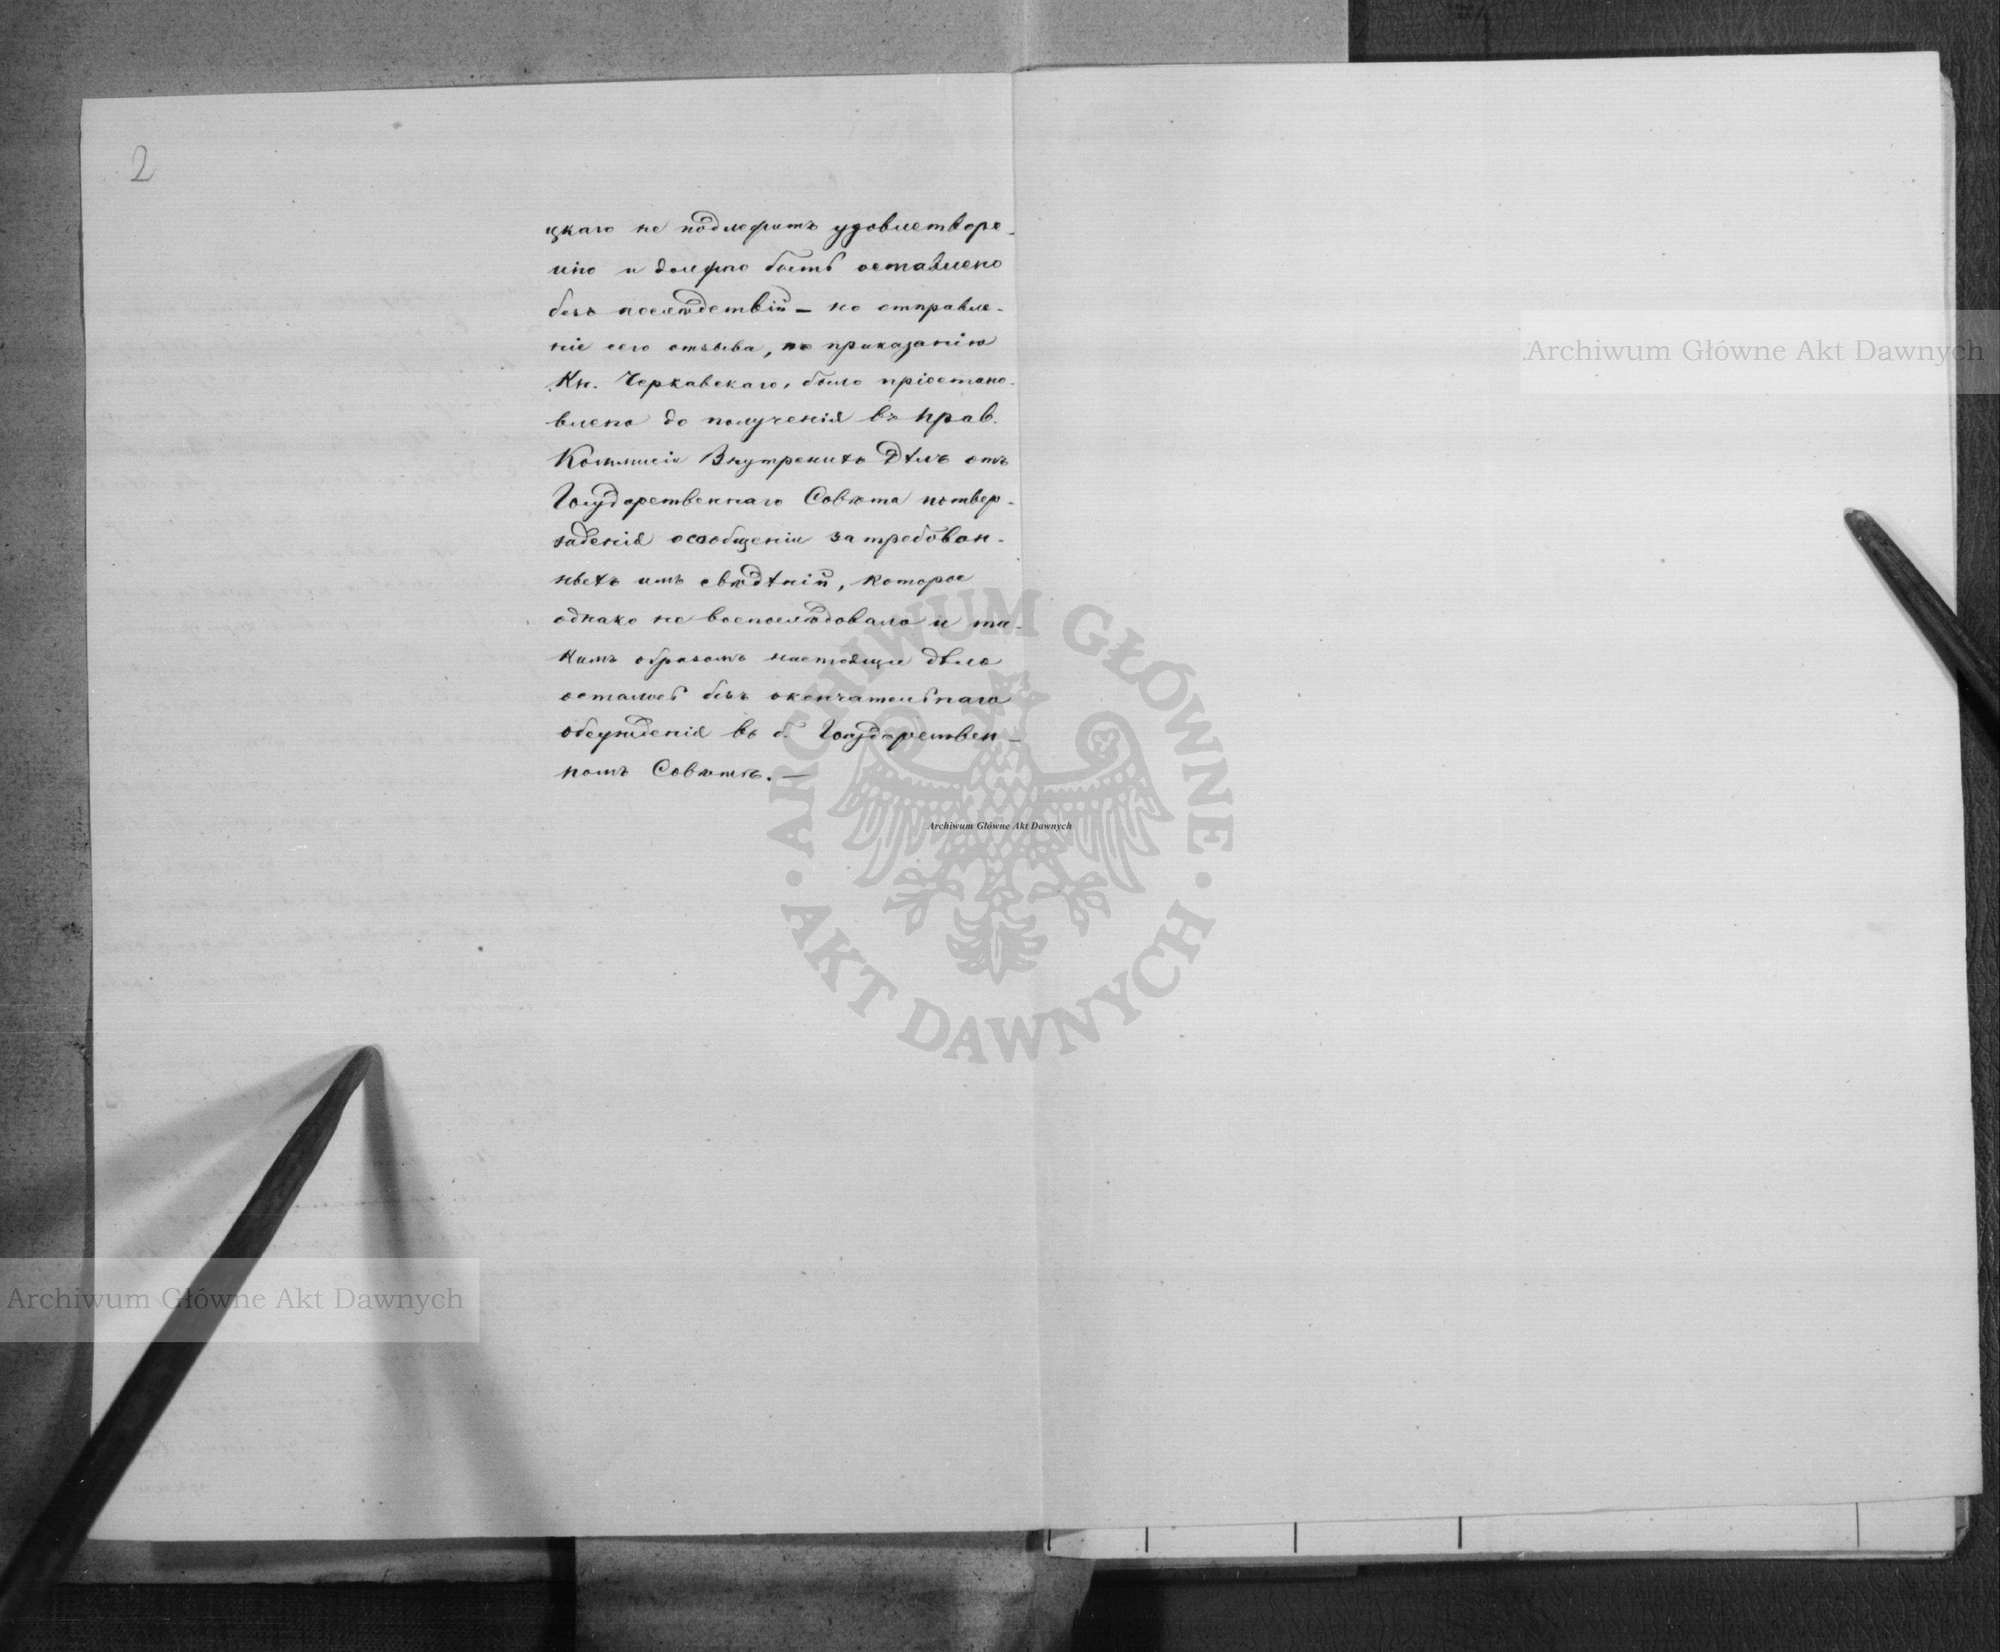 2
цкаго не подлежитъ удовлетворе-
нію и должно быть оставлено
безъ послѣдствій — но отправле-
ніе сего отзыва, по приказанію
Кн. Черкавскаго, было пріостано-
влено до полученія въ Прав.
Коммисіи Внутренихъ Дѣлъ отъ
Государственнаго Совѣта потвер-
жденія о сообщеніи затребован-
ныхъ имъ свѣдѣній, которое
однако не воспослѣдовало и та-
кимъ образомъ настоящее дѣло
осталось безъ окончательнаго
обсужденія въ б. Государствен-
номъ Совѣтѣ. —
Archiwum Główne Akt Dawnych
Archiwum Główne Akt Dawnych
ARCHIWUM GŁÓWNE
AKT DAWNYCH
Archiwum Główne Akt Dawnych